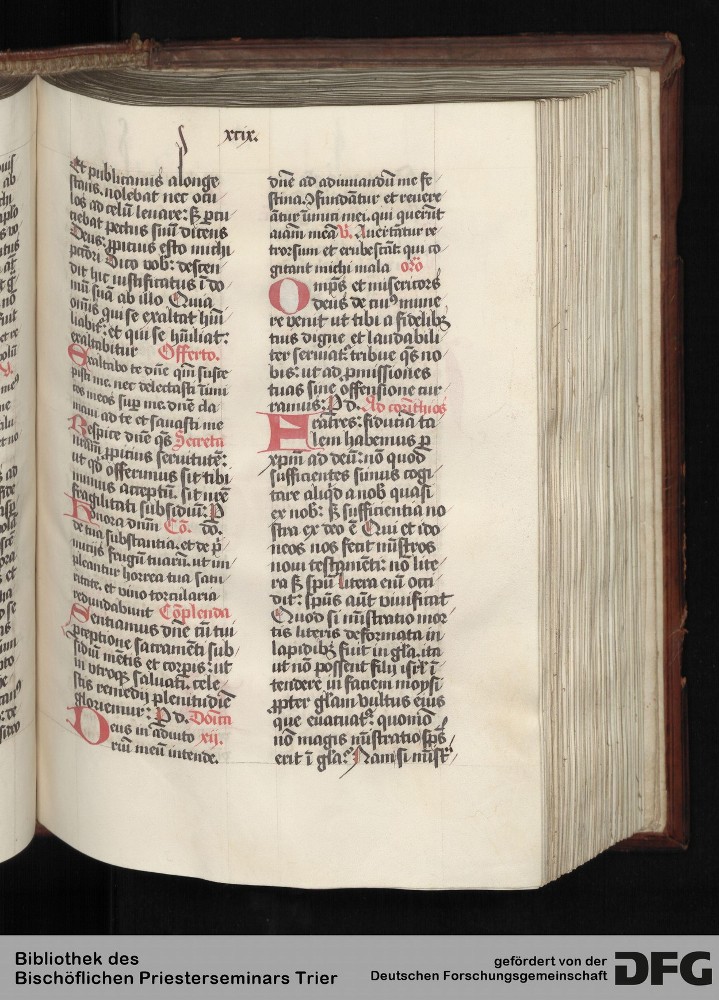 xcix.
Et publicanus alonge
stans. nolebat nec ocu
los ad celū leuare: sꝫ ꝑcu
ciebat pectus suū dicens
Deus ꝓpicius esto michi
pctōri Dico vob: descen
dit hic iustificatus ī do
mū suā ab illo Quia
om̄is qui se exaltat hūi
liabit̄: et qui se hūiliat:
exaltabitur Offerto.
Exaltabo te dn̄e qm̄ susce
pisti me. nec delectasti īimi
cos meos suꝑ me. dn̄e cla
maui ad te et sanasti me
Respice dn̄e qs̄ Secreta
nr̄am ꝓpicius seruitutē:
ut qd̄ offerimus sit tibi
munus acceptū. sit nr̄e
fragilitati subsidiū: P
Honora dnm̄ Cō. dō.
de tua substantia. et de p̄
mitijs frugū tuarū. ut im
pleantur horrea tua satu
ritate. et vino torcularia
redundabunt Cōplenda
Sentiamus dn̄e qs̄ tui
ꝑceptione sacramēti sub
sidiū mētis et corꝑis: ut
in vtroqꝫ saluati. cele
stis remedij plenitudīe
gloriemur: P d. Dōica
Deus in adiuto xij.
riū meū intende.
dn̄e ad adiuuandū me fe
stina. Ꝯfundātur et reuere
ātur īimici mei. qui querūt
aīam meā V. Auertātur re
trorsum et erubescāt: qui co
gitant michi mala orō
Omp̄s et misericors
deus de cuiꝰ mune
re venit ut tibi a fidelibꝫ
tuis digne et laudabili
ter seruiat̄: tribue qs̄ no
bis: ut ad ꝓmissiones
tuas sine offensione cur
ramus: P d. Ad corīthios
Fratres: fiduciā ta
lem habemus ꝑ
xp̄m ad deū: nō quod
sufficientes simus cogi
tare aliqd̄ a nob quasi
ex nob: sꝫ sufficientia no
stra ex deo ē Qui et ido
neos nos fecit mīstros
noui testamēti: nō litte
ra sꝫ sp̄u Litera enī occi
dit: sp̄us aūt viuificat
Quod si mīstratio mor
tis literis deformata in
lapidibꝫ fuit in gl̄a. ita
ut nō possent filij isrl̄ ī
tendere in faciem moysi
ꝓpter gl̄am vultus eius
que euacuat̄: quomō
nō magis mīstratio sp̄s
erit ī gl̄a: Nam si mīst̄
Bibliothek des
Bischöflichen Priesterseminars Trier
gefördert von der
Deutschen Forschungsgemeinschaft
DFG